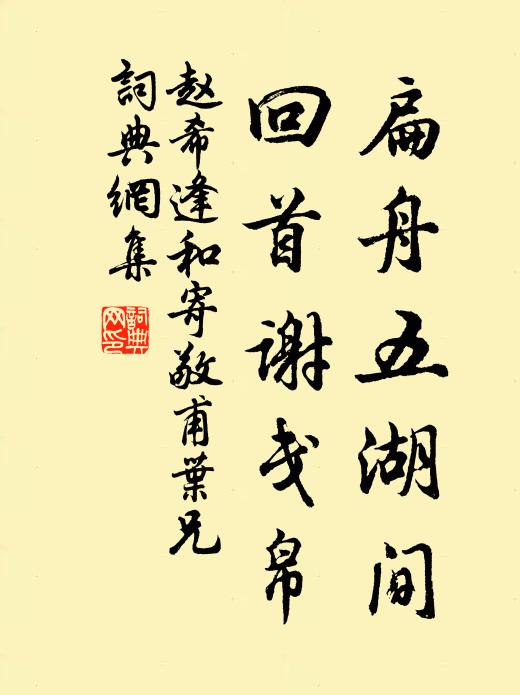 扁舟五湖间
回首谢戋帛
赵希逢和寄敬甫葉兄
詞典網集
詞典网印